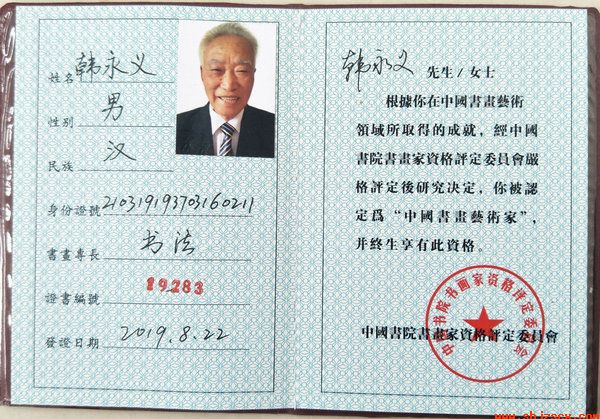 姓名 韩永义
性别 男
民族 汉
身份證號 210319193703160211
書畫專長 书法
證書編號 19283
發證日期 2019.8.22
韩永义 先生/女士
根據你在中國書畫藝術
領域所取得的成就，經中國
書院書畫家資格評定委員會嚴
格評定後研究决定，你被認
定爲“中國書畫藝術家”，
并終生享有此資格。
中國書院書畫家資格評定委員會
中国书院书画家资格评定委员会